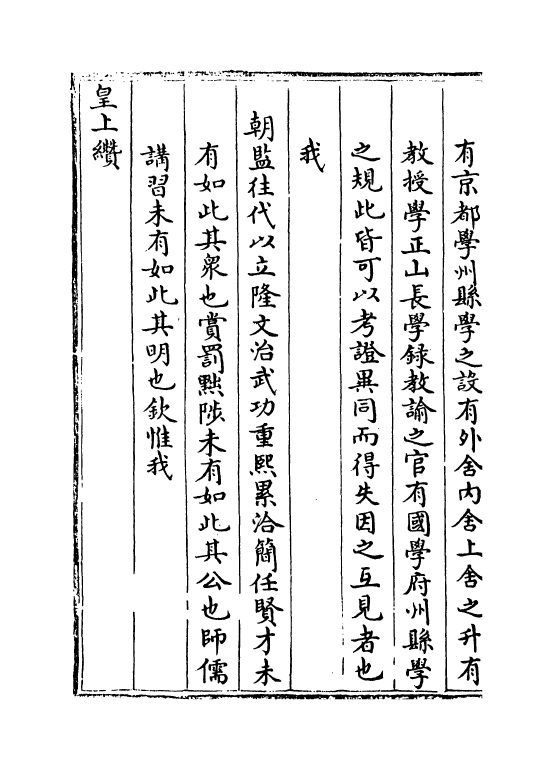 有京都學州縣學之設有外舍内舍上舍之升有
教授學正山長學録教諭之官有國學府州縣學
之規此皆可以考證異同而得失因之互見者也
我
朝監往代以立隆文治武功重熙累洽簡任賢才未
有如此其衆也賞罰黜陟未有如此其公也師儒
講習未有如此其明也欽惟我
皇上纘